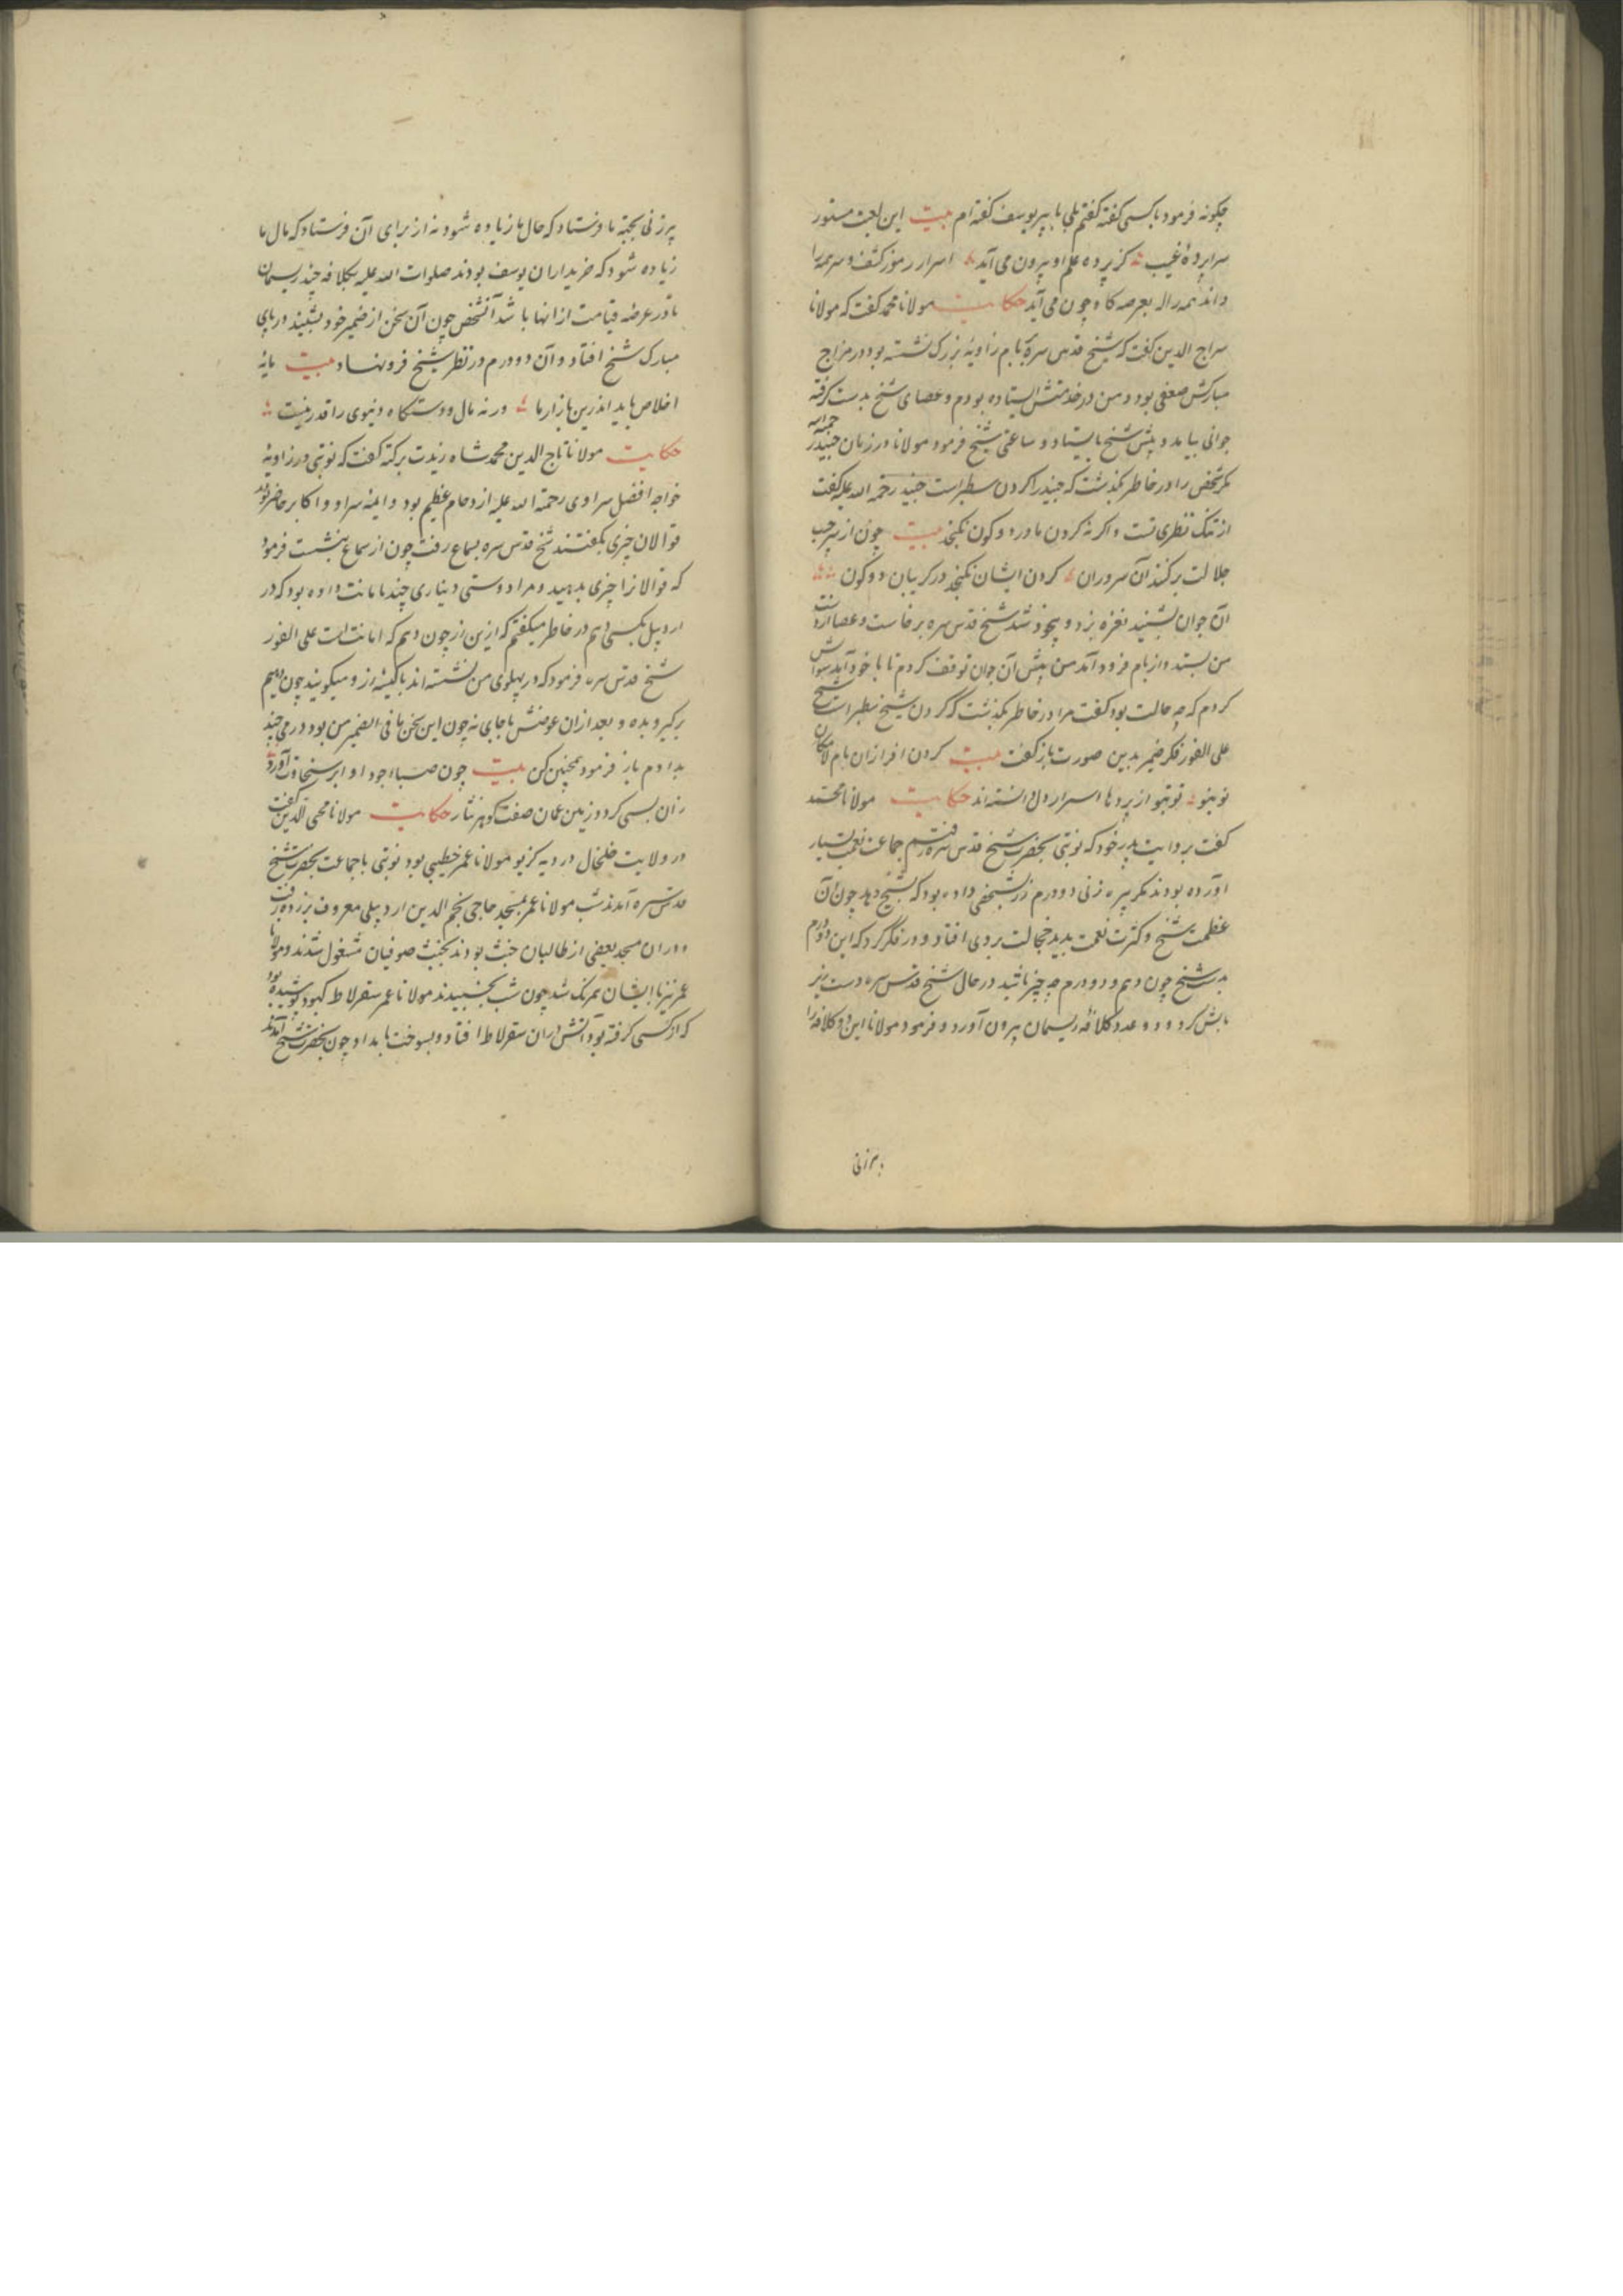 چگونه فرمود با کسی گفته گفتم بلی با پیر یوسف گفته ام بیت این لعبت مستور
سراپردهٔ غیب کز پرده علم او بیرون می آید اسرار رموز کشف و سر همه را
داند همه را به عرصه گاه چون می آید حکایت مولانا محمد گفت که مولانا
سراج الدین گفت که شیخ قدس سره بر بام زاویهٔ بزرگ نشسته بود و در مزاج
مبارکش ضعفی بود و من در خدمتش ایستاده بودم و عصای شیخ بدست گرفته
جوانی بیامد و پیش شیخ بایستاد و ساعتی شیخ فرمود مولانا در زمان جنید رحمة الله
مگر شخصی را در خاطر بگذشت که جنید را گردن سطبر است جنید رحمة الله علیه گفت
از تنگ نظری تست و اگر نه گردن ما در دو کون نگنجد بیت چون از سر جیب
جلالت برکنند آن سروران گردن ایشان نگنجد در گریبان دو کون
آن جوان بشنید نعره بزد و بیخود شد شیخ قدس سره برخاست و عصا از دست
من بستد و از بام فرود آمد من پیش آن جوان توقف کردم تا با خود آید سوالش
کردم که چه حالت بود گفت مرا در خاطر بگذشت که گردن شیخ سطبر است شیخ
علی الفور فکر ضمیر بدین صورت باز گفت بیت گردن افرازان بام لامکان
تو بتو از پردها اسرار دل دانسته اند حکایت مولانا محمد
گفت بروایت پدر خود که نوبتی بحضرت شیخ قدس سره رفتیم جماعت نعمت بسیار
آورده بودند مگر پیره زنی دو درم زر بشخصی داده بود که بشیخ دهد چون آن
عظمت شیخ و کثرت نعمت بدید خجالت بروی افتاد و در فکر کرد که این دو درم
بدست شیخ چون دهم و دو درم چه چیز باشد در حال شیخ قدس سره دست زیر
بالش کرد و دو عدد کلافهٔ ریسمان بیرون آورد و فرمود مولانا این دو کلافه را
پیرزنی
پیرزنی بجهة ما فرستاد که حال ما زیاده شود نه از برای آن فرستاد که مال ما
زیاده شود که خریداران یوسف بودند صلوات الله علیه بکلافه چند ریسمان
تا در عرضهٔ قیامت از آنها باشد آن شخص چون آن سخن از ضمیر خود بشنید در پای
مبارک شیخ افتاد و آن دو درم در نظر شیخ فرو نهاد بیت مایهٔ
اخلاص باید اندرین بازار ما ور نه مال و دستگاه دنیوی را قدر نیست
حکایت مولانا تاج الدین محمد شاه زیدت برکته گفت که نوبتی در زاویهٔ
خواجه افضل سراوی رحمة الله علیه ازدحام عظیم بود و ایمهٔ سراو و اکابر حاضر بودند
قوالان چیزی بگفتند شیخ قدس سره بسماع رفت چون از سماع بنشست فرمود
که قوالانرا چیزی بدهید و مرا دوستی دیناری چند بامانت داده بود که در
اردبیل بکسی دهم در خاطر میگفتم که ازین زر چون دهم که امانت است علی الفور
شیخ قدس سره فرمود که در پهلوی من نشسته اند با کیسهٔ زر و میگویند چون دهیم
برگیر و بده و بعد از آن عوضش باجای نه چون این سخن ما فی الضمیر من بود درمی چند
بدادم باز فرمود همچنین کن بیت چون صبا جود او ابر سخاوت آورد
زان بسی کرد و زمین عمان صفت گوهر نثار حکایت مولانا محی الدین گفت
در ولایت خلخال در دیه کزبو مولانا عمر خطیبی بود نوبتی با جماعت بحضرت شیخ
قدس سره آمدند شب مولانا عمر بمسجد حاجی نجم الدین اردبیلی معروف رفت
و در آن مسجد بعضی از طالبان خبث بودند بخبث صوفیان مشغول شدند و مولانا
عمر نیز با ایشان همرنگ شد چون شب بخسبیدند مولانا عمر سقرلاط کبود پوشیده بود
که از کسی گرفته بود آتش در آن سقرلاط افتاد و بسوخت بامداد چون بحضرت شیخ آمدند